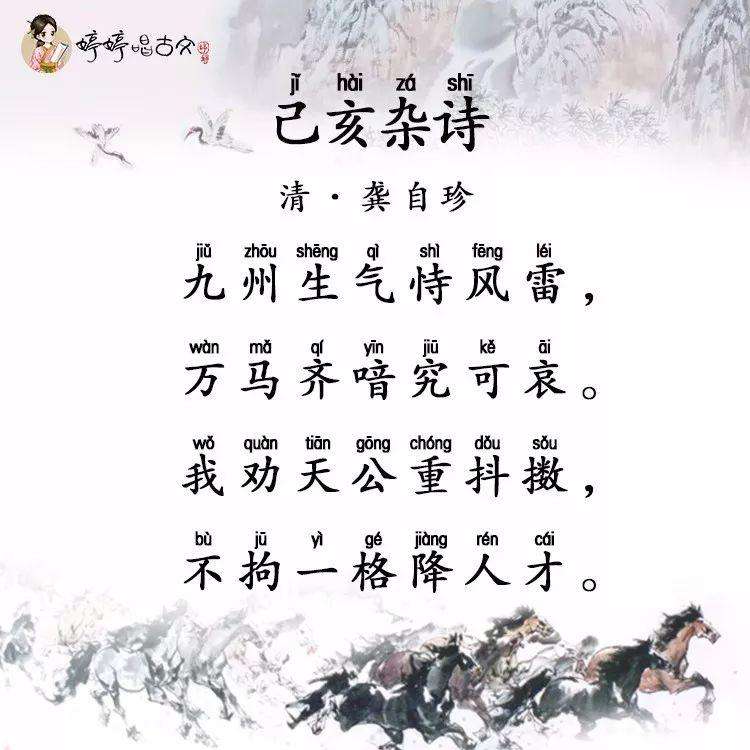 婷婷唱古文
jǐ hài zá shī
己亥杂诗
清·龚自珍
jiǔ zhōu shēng qì shì fēng léi
九州生气恃风雷，
wàn mǎ qí yīn jiū kě āi
万马齐喑究可哀。
wǒ quàn tiān gōng chóng dǒu sǒu
我劝天公重抖擞，
bù jū yì gé jiàng rén cái
不拘一格降人才。